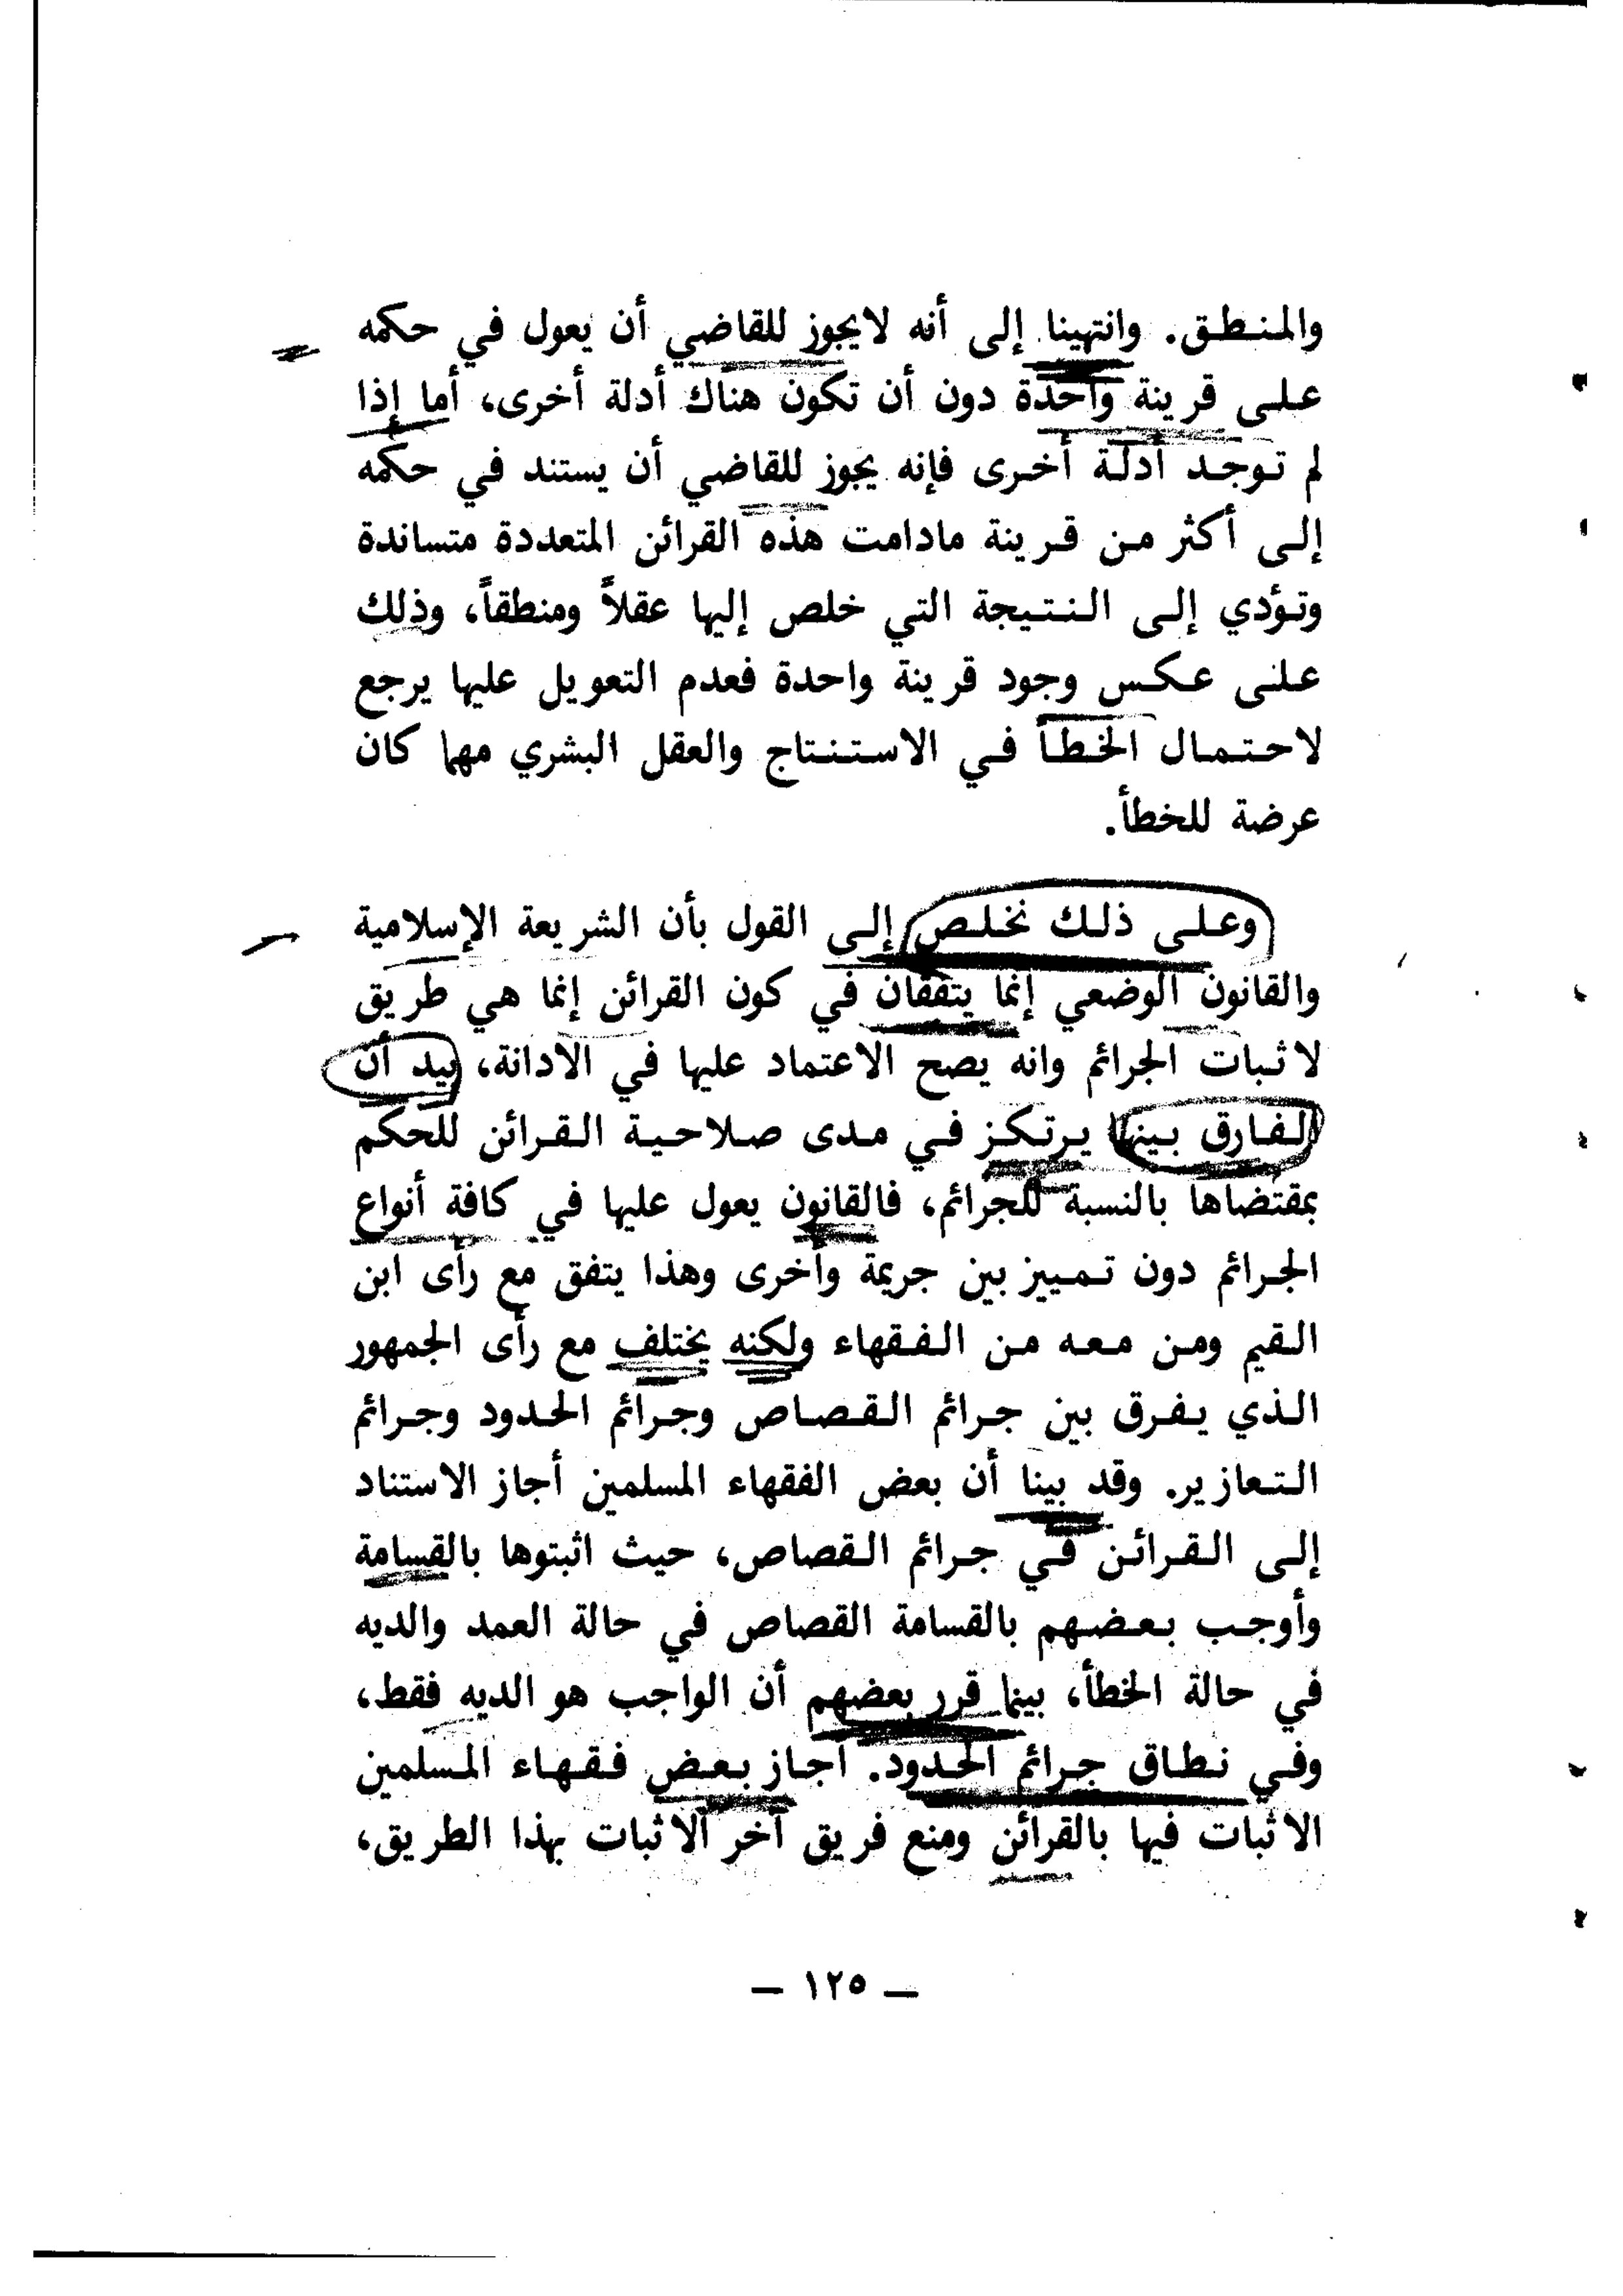 والمنطق. وانتهينا إلى أنه لايجوز للقاضي أن يعول في حكمه
على قرينة واحدة دون أن تكون هناك أدلة أخرى، أما إذا
لم توجد أدلة أخرى فإنه يجوز للقاضي أن يستند في حكمه
إلى أكثر من قرينة مادامت هذه القرائن المتعددة متساندة
وتؤدي إلى النتيجة التي خلص إليها عقلاً ومنطقاً، وذلك
على عكس وجود قرينة واحدة فعدم التعويل عليها يرجع
لاحتمال الخطأ في الاستنتاج والعقل البشري مهما كان
عرضة للخطأ.
وعلى ذلك نخلص إلى القول بأن الشريعة الإسلامية
والقانون الوضعي إنما يتفقان في كون القرائن إنما هي طريق
لاثبات الجرائم وانه يصح الاعتماد عليها في الادانة، بيد أن
الفارق بينهما يرتكز في مدى صلاحية القرائن للحكم
بمقتضاها بالنسبة للجرائم، فالقانون يعول عليها في كافة أنواع
الجرائم دون تمييز بين جريمة وأخرى وهذا يتفق مع رأى ابن
القيم ومن معه من الفقهاء ولكنه يختلف مع رأى الجمهور
الذي يفرق بين جرائم القصاص وجرائم الحدود وجرائم
التعازير. وقد بينا أن بعض الفقهاء المسلمين أجاز الاستناد
إلى القرائن في جرائم القصاص، حيث اثبتوها بالقسامة
وأوجب بعضهم بالقسامة القصاص في حالة العمد والديه
في حالة الخطأ، بينما قرر بعضهم أن الواجب هو الديه فقط،
وفي نطاق جرائم الحدود. أجاز بعض فقهاء المسلمين
الاثبات فيها بالقرائن ومنع فريق آخر الاثبات بهذا الطريق،
— ١٢٥ —